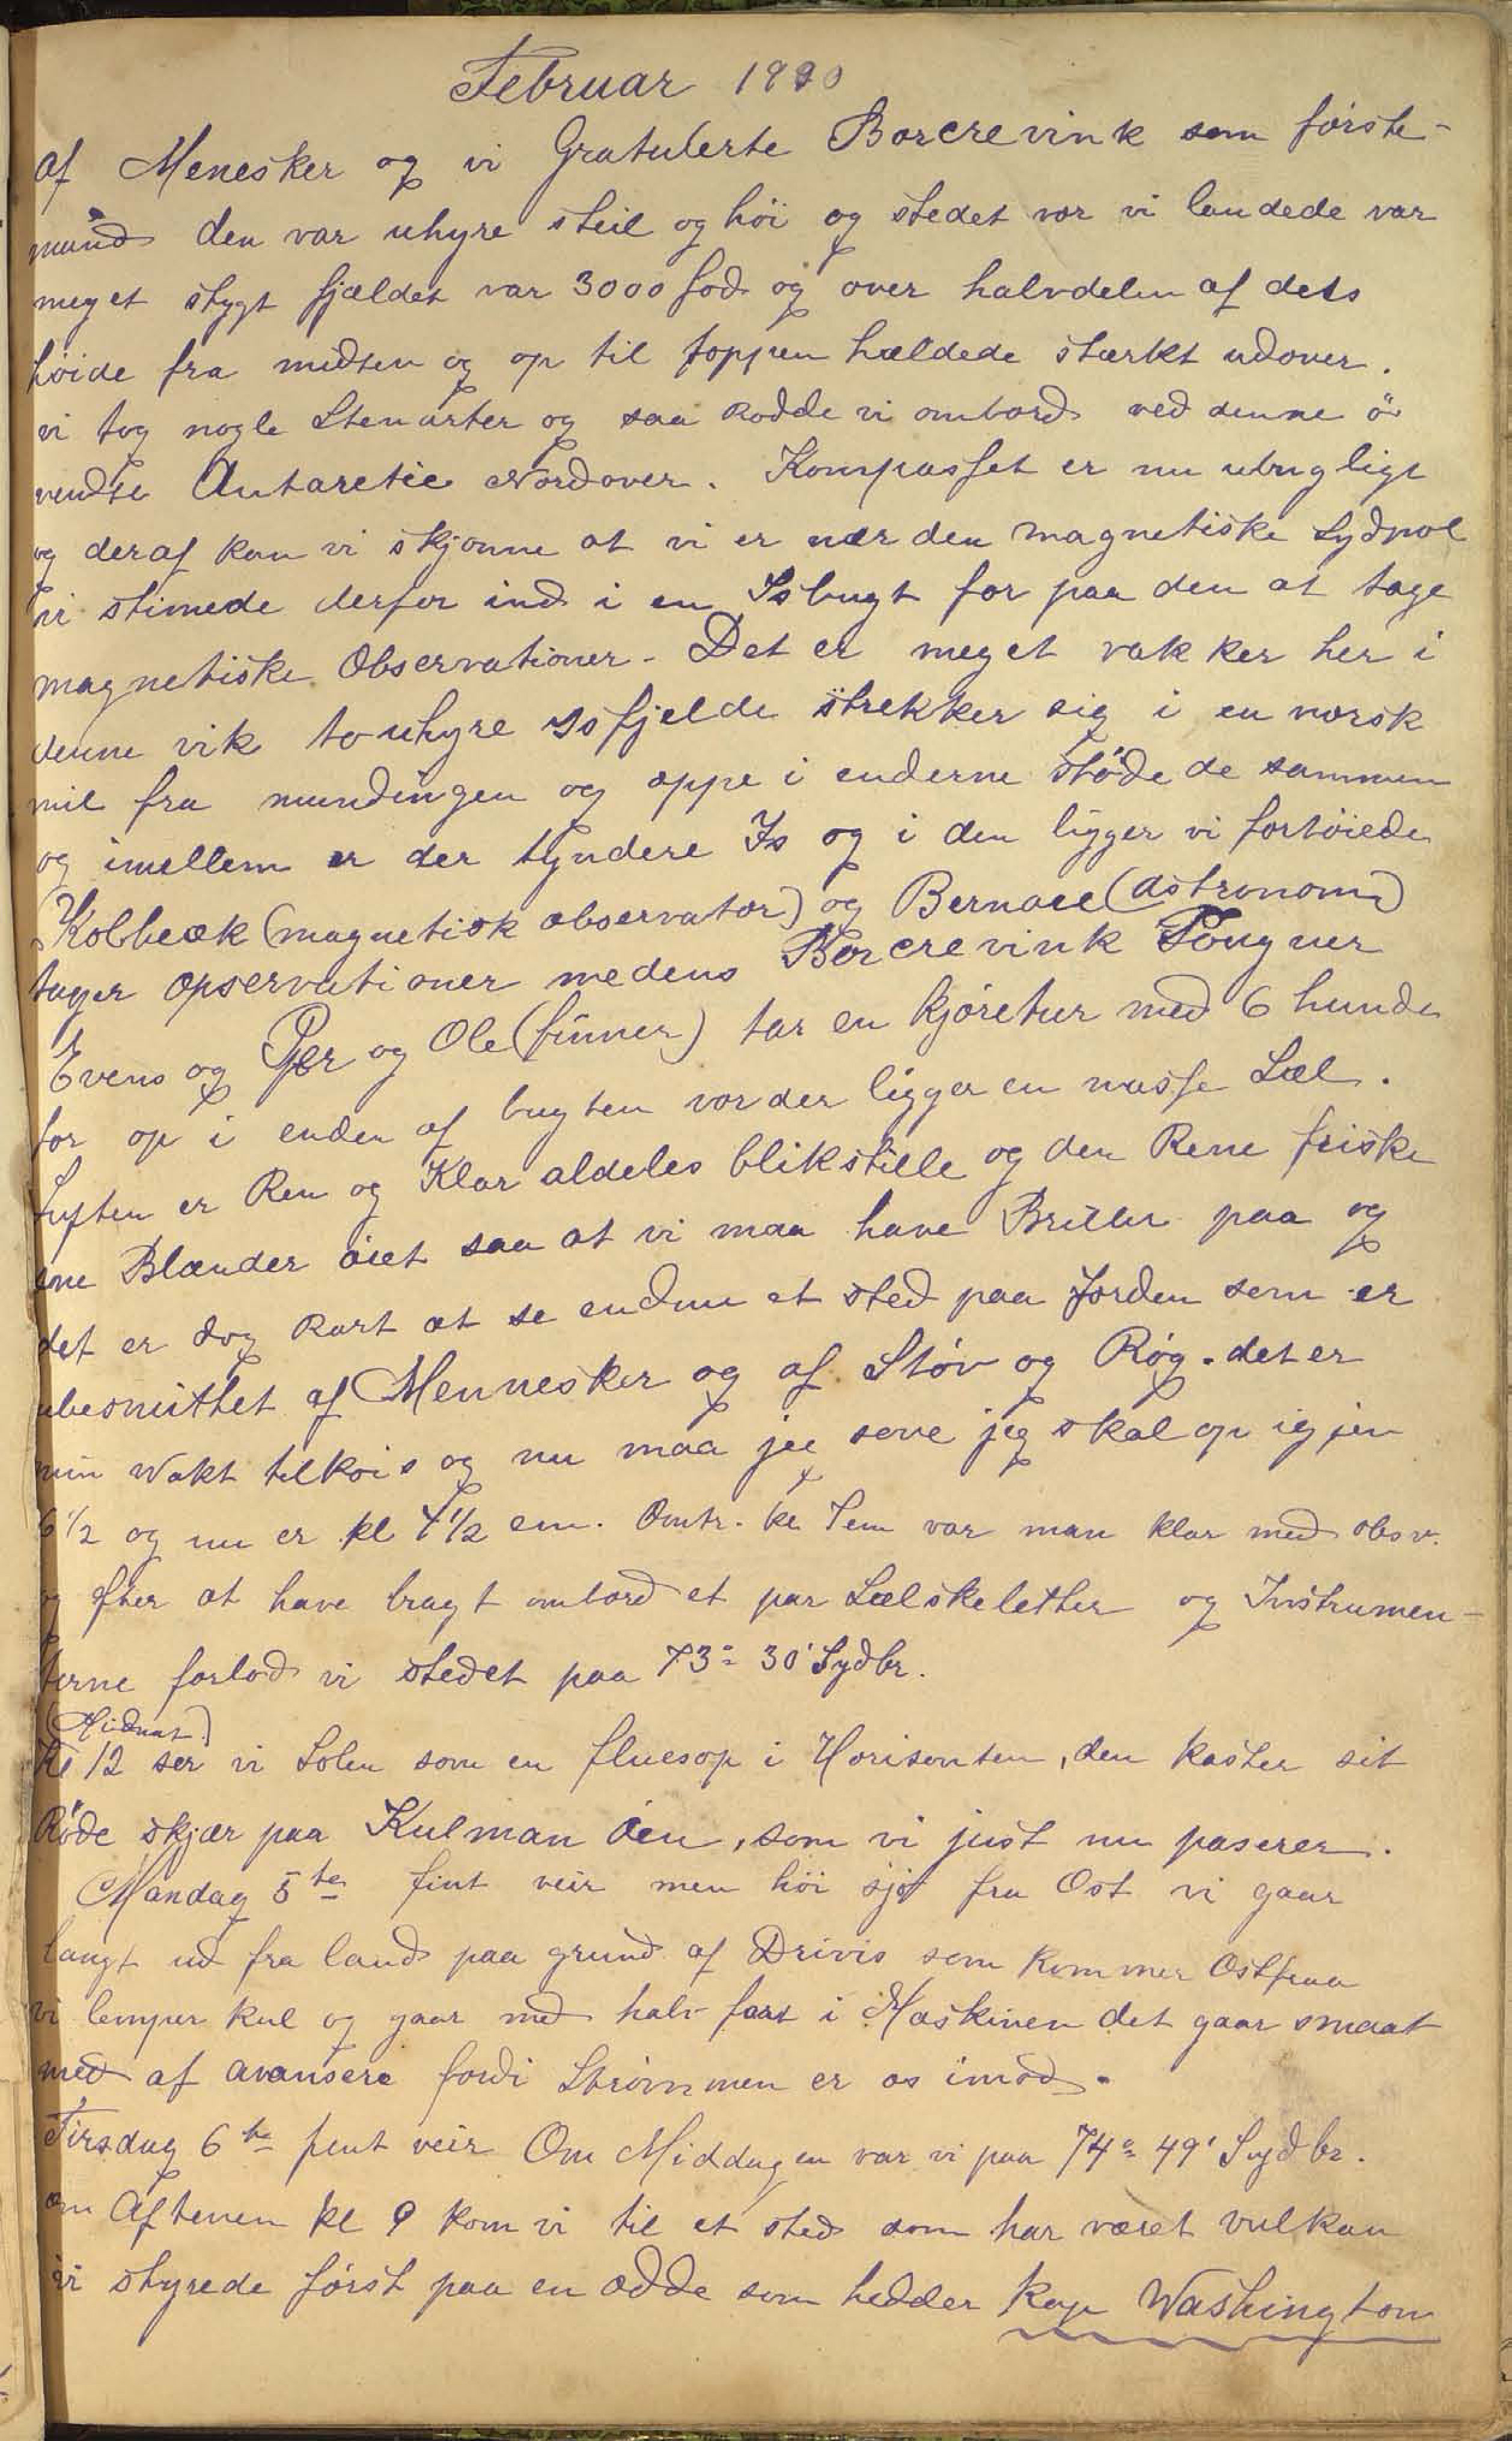 Februar 1900
af Menesker og vi Gratulerte Borcrevink som første-
mand den var uhyre steil og høi og stedet vor vi landede var
meget stygt fjældet var 3000 fod og over halvdelen af dets
høide fra midten og op til toppen hældede stærkt udover.
vi tog nogle Stenarter og saa Rodde vi ombord ved denne ö
vendte Antarctic Nordover. Kompasset er nu ubrugligt
og deraf kan vi skjønne at vi er nær den magnetiske Sydpol
vi stimede derfor ind i en Isbugt for paa den at tage
magnetiske Observationer. Det er meget vakker her i
denne vik to uhyre Isfjelde strekker sig i en norsk
mil fra mundingen og oppe i enderne støde de sammen
og imellem er der tyndere Is og i den ligger vi fortøiede
Kolbeck (magnetisk observator) og Bernace (Astronom)
tager opservationer medens Borcrevink Fougner
Evens og Per og Ole (finner) tar en kjøretur med 6 hunde
for op i enden af bugten vor der ligger en masse Sæl.
Luften er Ren og Klar aldeles blikstille og den Rene friske
sne Blænder øiet saa at vi maa have Briller paa og
det er dog Rart at se endnu et sted paa Jorden som er
ubesmittet af Mennesker og af Støv og Røg. det er
min Wakt tilkøis og nu maa jeg sove jeg skal op igjen
6 1/2 og nu er kl 4 1/2 em. Omtr. kl 7 em var man klar med obsv.
og efter at have bragt ombord et par Sælskeletter og Instrumen-
terne forlod vi stedet paa 73° 30' Sydbr.
(Midnat)
Kl 12 ser vi Solen som en fluesop i Horisonten, den kaster sit
Røde skjær paa Kulman øen, som vi just nu paserer.
Mandag 5te fint veir men høi sjø fra Ost vi gaar
langt ud fra land paa grund af Drivis som kommer Ostfraa
vi lemper kul og gaar med halv fart i Maskinen det gaar smaat
med at avansere fordi Strømmen er os imod.
Tirsdag 6te fint veir Om Middagen var vi paa 74° 49' Sydbr.
om Aftenen kl 9 kom vi til et sted som har været vulkan
vi styrede først paa en odde som hedder Kap Washington